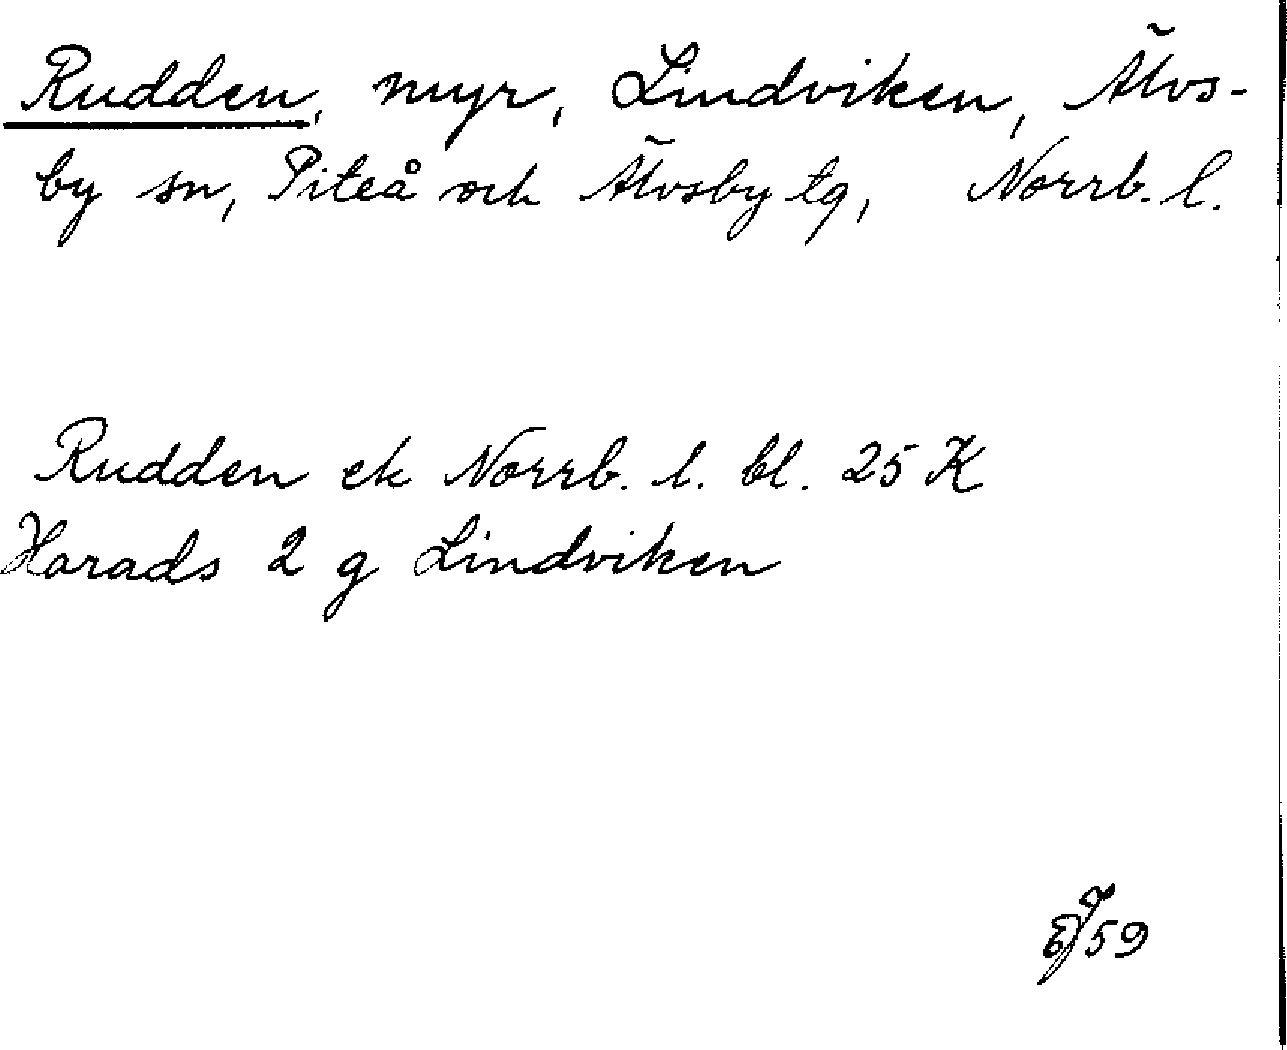 Rudden, myr, Lindviken, Älvs-
by sn, Piteå och Älvsby tg, Norrb. l.
Rudden ek Norrb. l. bl. 25 K
Harads 2 g Lindviken
59